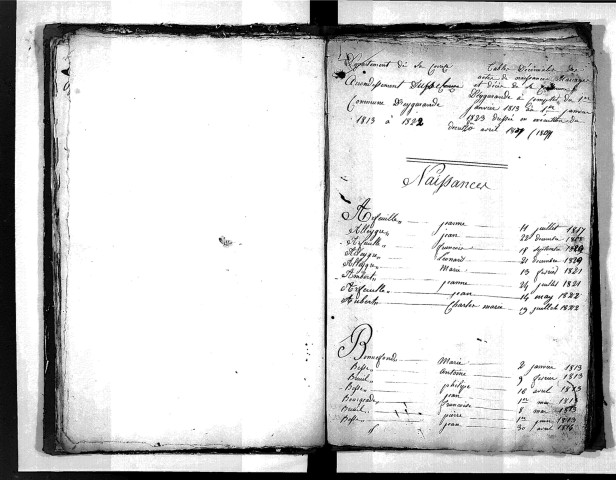 Département de la Corrèze
Arrondissement d'Ussel
Commune d'Eygurande
1813 à 1822
Table Décennale des
actes de naissances Mariage
et décès de la Commune
d'Eygurande à compter du 1er
janvier 1813 au 1er janvier
1823 dressée en exécution du
décret avril
Naissances
Arfeuille jeanne 11 juillet 1817
Alleygre jean 22 décembre
Arfeuille francois 18 septembre
Alleygre Leonard 21 décembre
Alleygre Marie 13 février 1821
Ambert jeanne 24 juillet 1821
Arfeuille jean 14 may 1822
Aubert Charles marie 19 juillet 1822
Bonnefond Marie 2 janvier 1813
Besse Antoine 9 février 1813
philipe 10 avril 1813
Besse jean 1er mai 1813
francoise 8 mai 1813
pierre 1er juin 1813
jean 30 avril